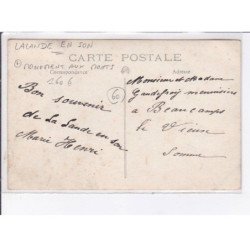 LALANDE EN SON
CARTE POSTALE
MONUMENT AUX MORTS
Correspondance
Adresse
60
Bon souvenir
de La Lande en son
Marie Henri
Monsieur et Madame
Gaudefroy menuisiers
à Beaucamps
le Vieux
Somme